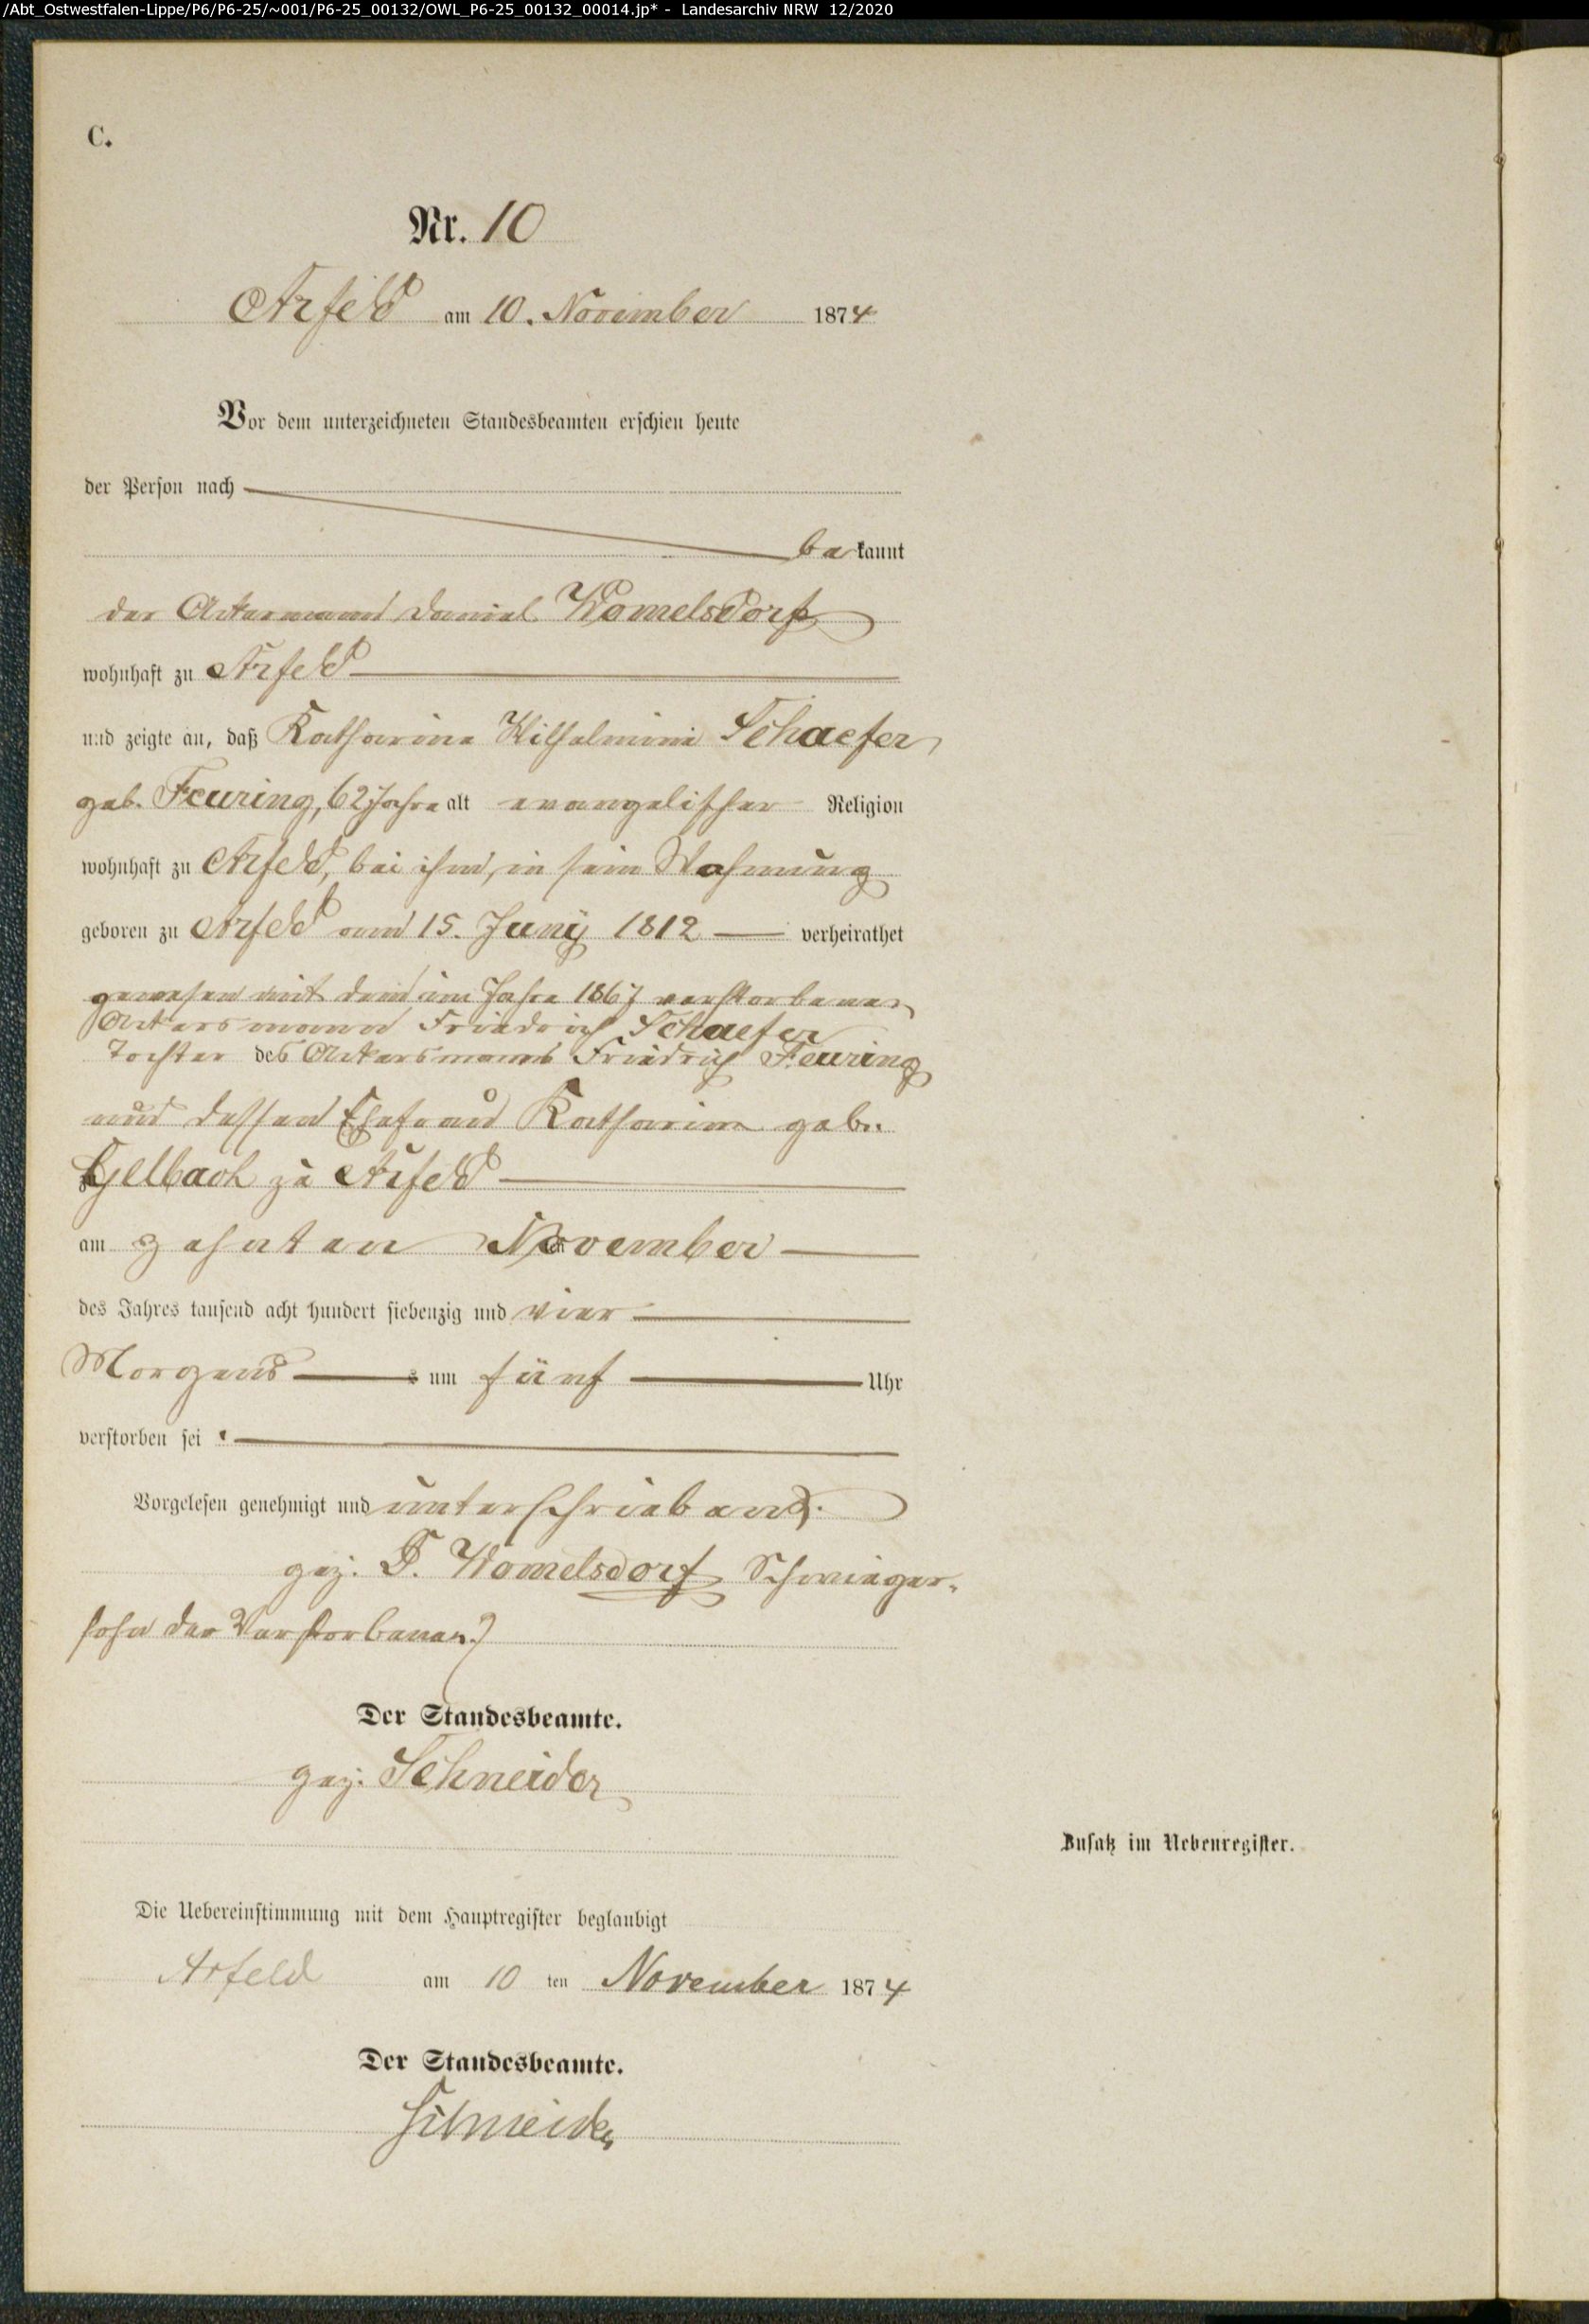 /Abt_Ostwestfalen-Lippe/P6/P6-25/~001/P6-25_00132/OWL_P6-25_00132_00014.jp* - Landesarchiv NRW 12/2020
C.
Nr. 10
Arfeld am 10. November 1874
Vor dem unterzeichneten Standesbeamten erschien heute
der Person nach
bekannt
der Ackermann Daniel Womelsdorf
wohnhaft zu Arfeld
und zeigte an, daß Katharina Wilhelmine Schaefer,
geb. Feuring, 62 Jahre alt evangelischer Religion
wohnhaft zu Arfeld, bei ihm, in sein Wohnung
geboren zu Arfeld am 15. Juny 1812 verheirathet
gewesen mit dem im Jahre 1867 verstorbenen
Ackersmann Friedrich Schaefer
Tochter des Ackersmanns Friedrich Feuring
und dessen Ehefrau Katharina geb.
Gelbach zu Arfeld
am zehnten November
des Jahres tausend acht hundert siebenzig und vier
Morgens um fünf Uhr
verstorben sei
Vorgelesen genehmigt und unterschrieben.
gez. D. Womelsdorf Schwieger-
sohn der Verstorbenen.
Der Standesbeamte.
gez. Schneider
Zusatz im Nebenregister.
Die Uebereinstimmung mit dem Hauptregister beglaubigt
Arfeld am 10 ten November 1874
Der Standesbeamte.
Schneider